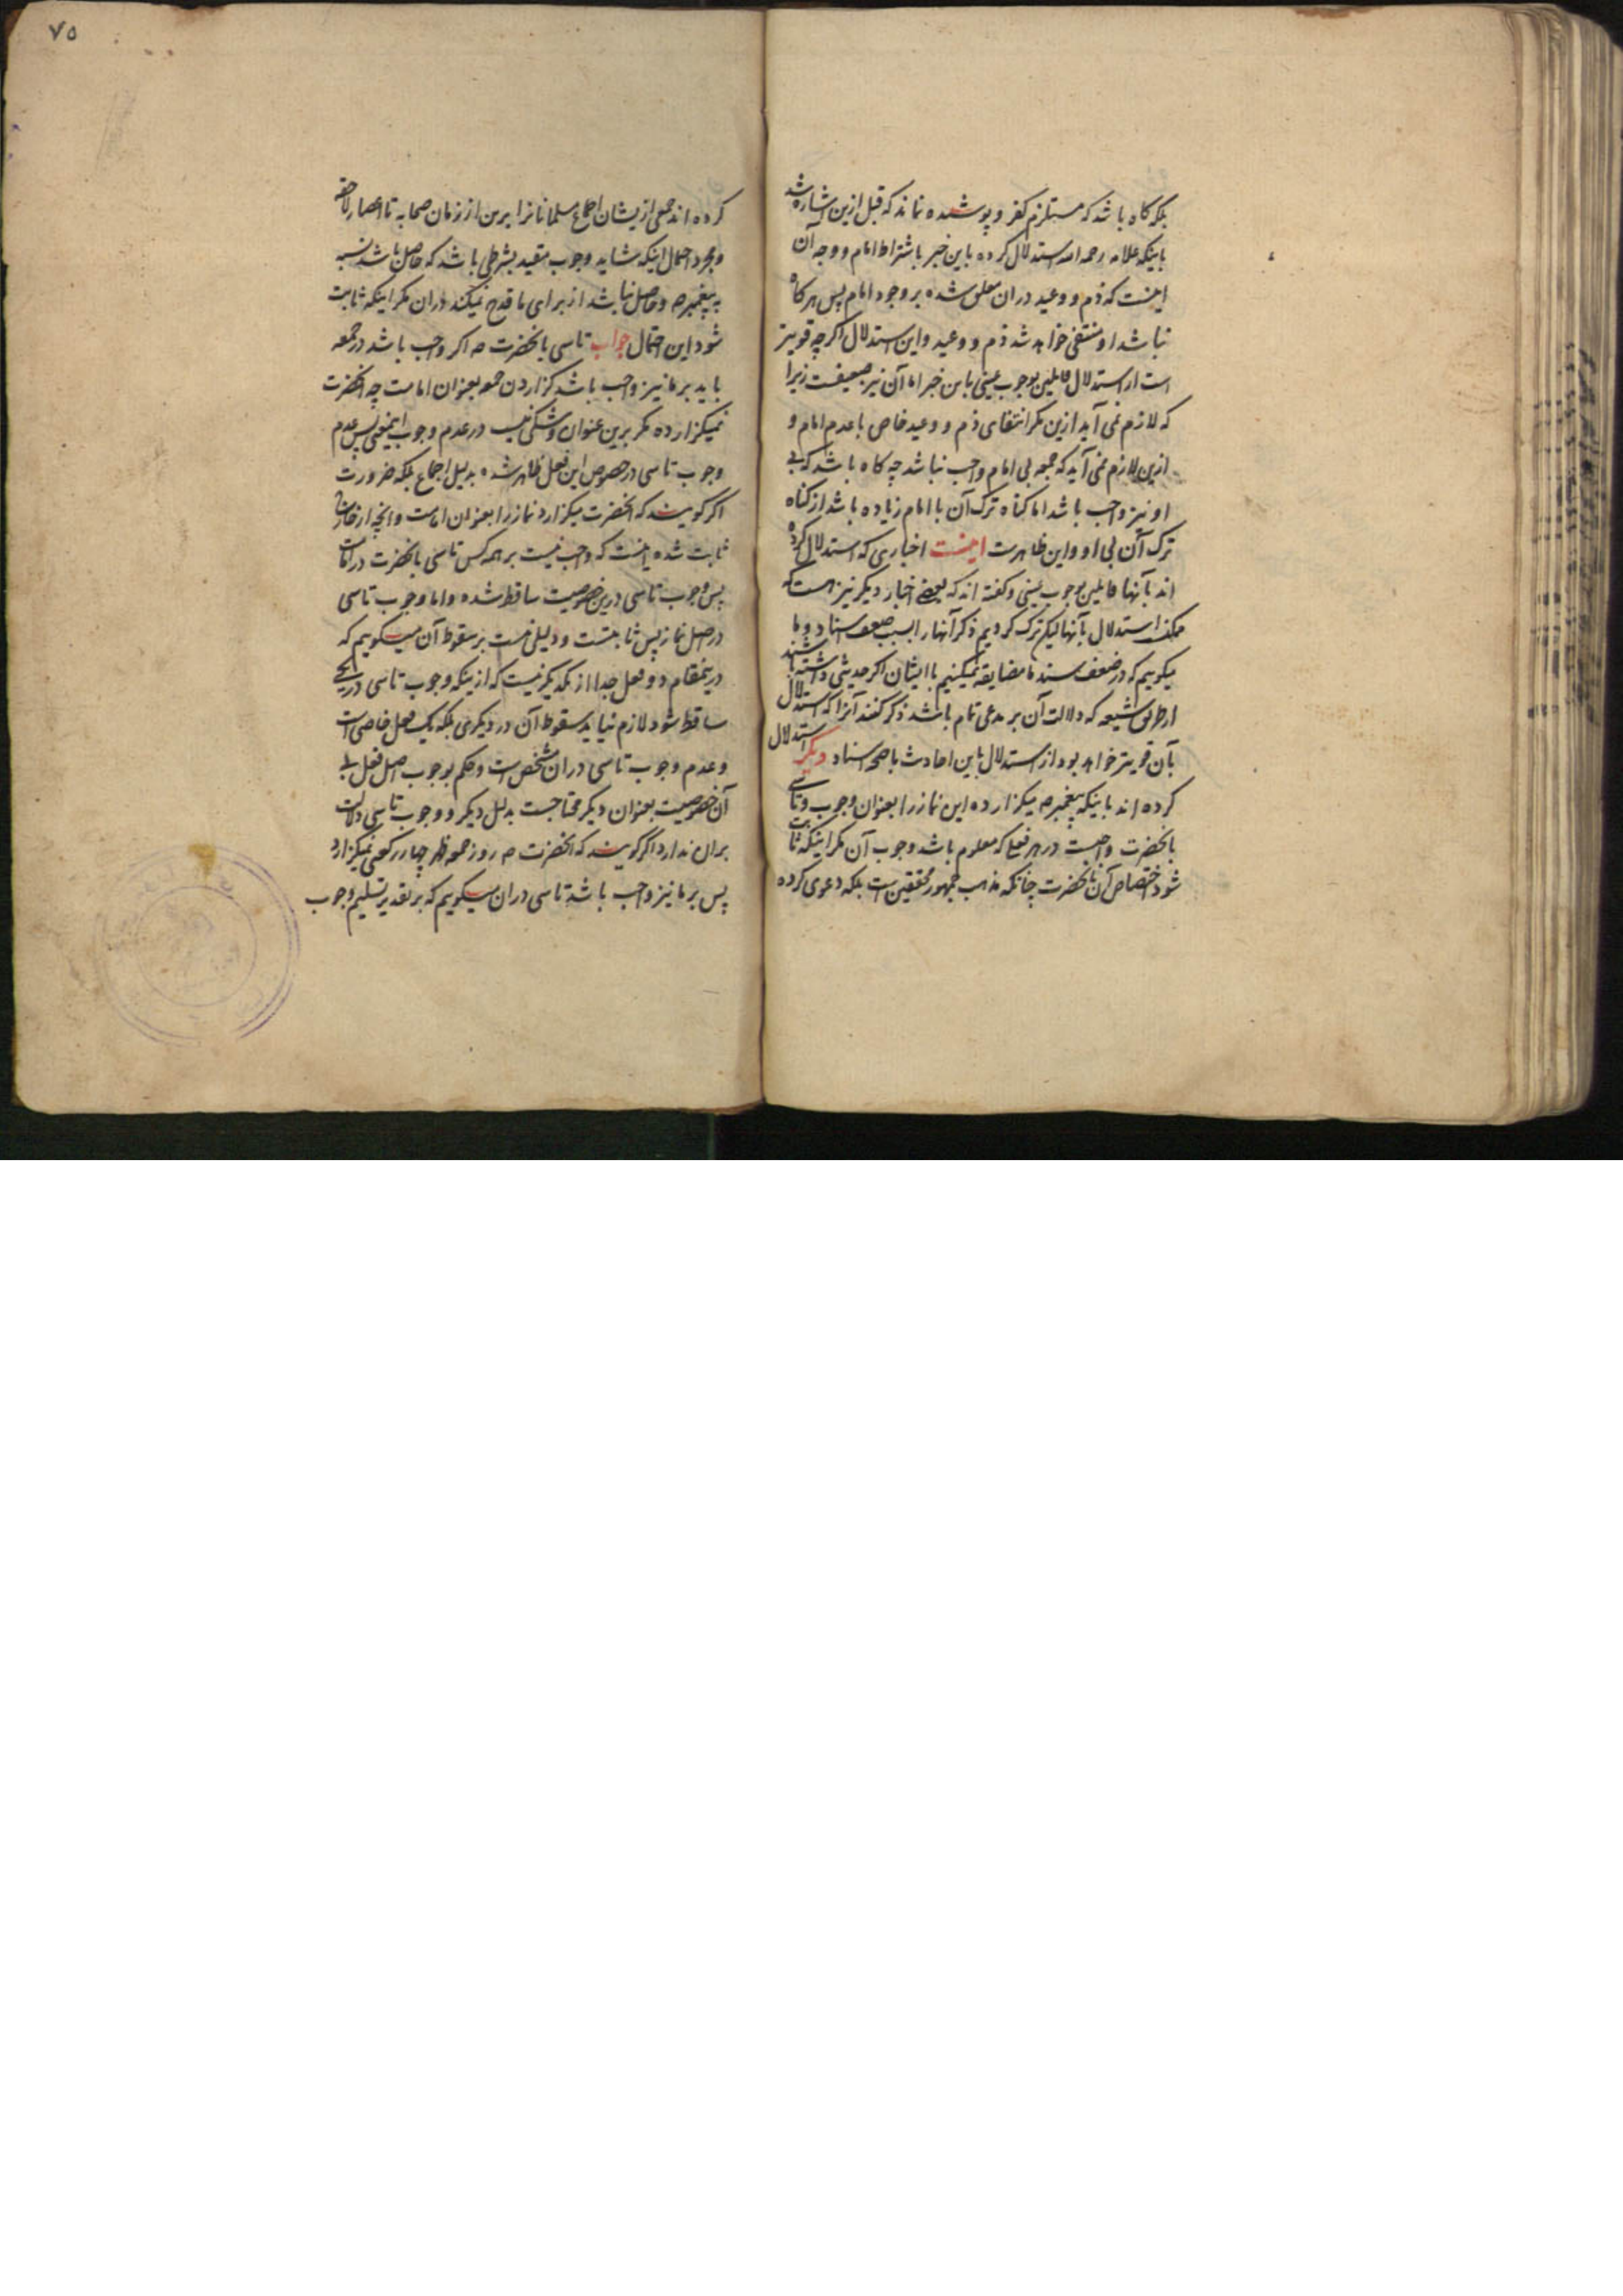 بلکه کاه باشد که مستلزم کفر و پوشیده نماند که قبل ازین اشاره شد
باینکه علامه رحمه الله استدلال کرده باین خبر باشتراط امام و وجه آن
اینست که ذم و وعید دران معلق شده بر وجود امام پس هرکاه
نباشد او منتفی خواهد شد ذم و وعید و این استدلال اکرچه قویتر
است از استدلال قایلین بوجوب عینی باین خبر اما آن نیز ضعیفست زیرا
که لازم نمی آید ازین مکر انتفای ذم و وعید خاص با عدم امام و
ازین لازم نمی آید که جمعه بی امام واجب نباشد چه کاه باشد که بی
او نیز واجب باشد اما کناه ترک آن با امام زیاده باشد از کناه
ترک آن بی او و این ظاهرست اینست اخباری که استدلال کرده
اند بآنها قایلین بوجوب عینی و کفته اند که بعضی اخبار دیکر نیز هست که
ممکنست استدلال بآنها لیکن ترک کردیم ذکر آنها را بسبب ضعف اسناد و ما
میکوییم که در ضعف سند ما مضایقه نمیکنیم با ایشان اکر حدیثی داشته باشند
از طریق شیعه که دلالت آن بر مدعی تمام باشد ذکر کنند آنرا که استدلال
بآن قویتر خواهد بود از استدلال باین احادیث با صحه اسناد دیکر استدلال
کرده اند باینکه پیغمبر ص میکزارده این نماز را بعنوان وجوب و تاسی
بانحضرت واجبست در هر فعلی که معلوم باشد وجوب آن مکر اینکه ثابت
شود اختصاص آن بانحضرت چنانکه مذهب جمهور محققین است بلکه دعوی کرده
٧٥
کرده اند جمعی ازیشان اجماع مسلمانانرا برین از زمان صحابه تا اعصار لاحقه
و مجرد احتمال اینکه شاید وجوب مقید بشرطی باشد که حاصل باشد نسبه
به پیغمبر ص و حاصل نباشد از برای ما قدح نمیکند دران مکر اینکه ثابت
شود این احتمال جواب تاسی بانحضرت ص اکر واجب باشد در جمعه
باید بر ما نیز واجب باشد کزاردن جمعه بعنوان امامت چه انحضرت
نمیکزارده مکر برین عنوان و شکی نیست در عدم وجوب اینمعنی پس عدم
وجوب تاسی در خصوص این فعل ظاهر شده بدلیل اجماع بلکه ضرورت
اکر کویند که انحضرت میکزارد نماز را بعنوان امامت و انچه از خارج
ثابت شده اینست که واجب نیست بر همه کس تاسی بانحضرت در امامت
پس وجوب تاسی درین خصوصیت ساقط شده و اما وجوب تاسی
در اصل نماز پس ثابتست و دلیلی نیست بر سقوط آن میکوییم که
درینمقام دو فعل جدا از یکدیکر نیست که از ینکه وجوب تاسی در یکی
ساقط شود لازم نیاید سقوط آن در دیکری بلکه یک فعل خاصی است
و عدم وجوب تاسی دران مشخص است و حکم بوجوب اصل فعل بی
آن خصوصیت بعنوان دیکر محتاجست بدلیل دیکر و وجوب تاسی دلالت
بران ندارد اکر کویند که انحضرت ص روز جمعه ظهر چهار رکعتی نمیکزارد
پس بر ما نیز واجب باشد تاسی دران میکوییم که بر تقدیر تسلیم وجوب